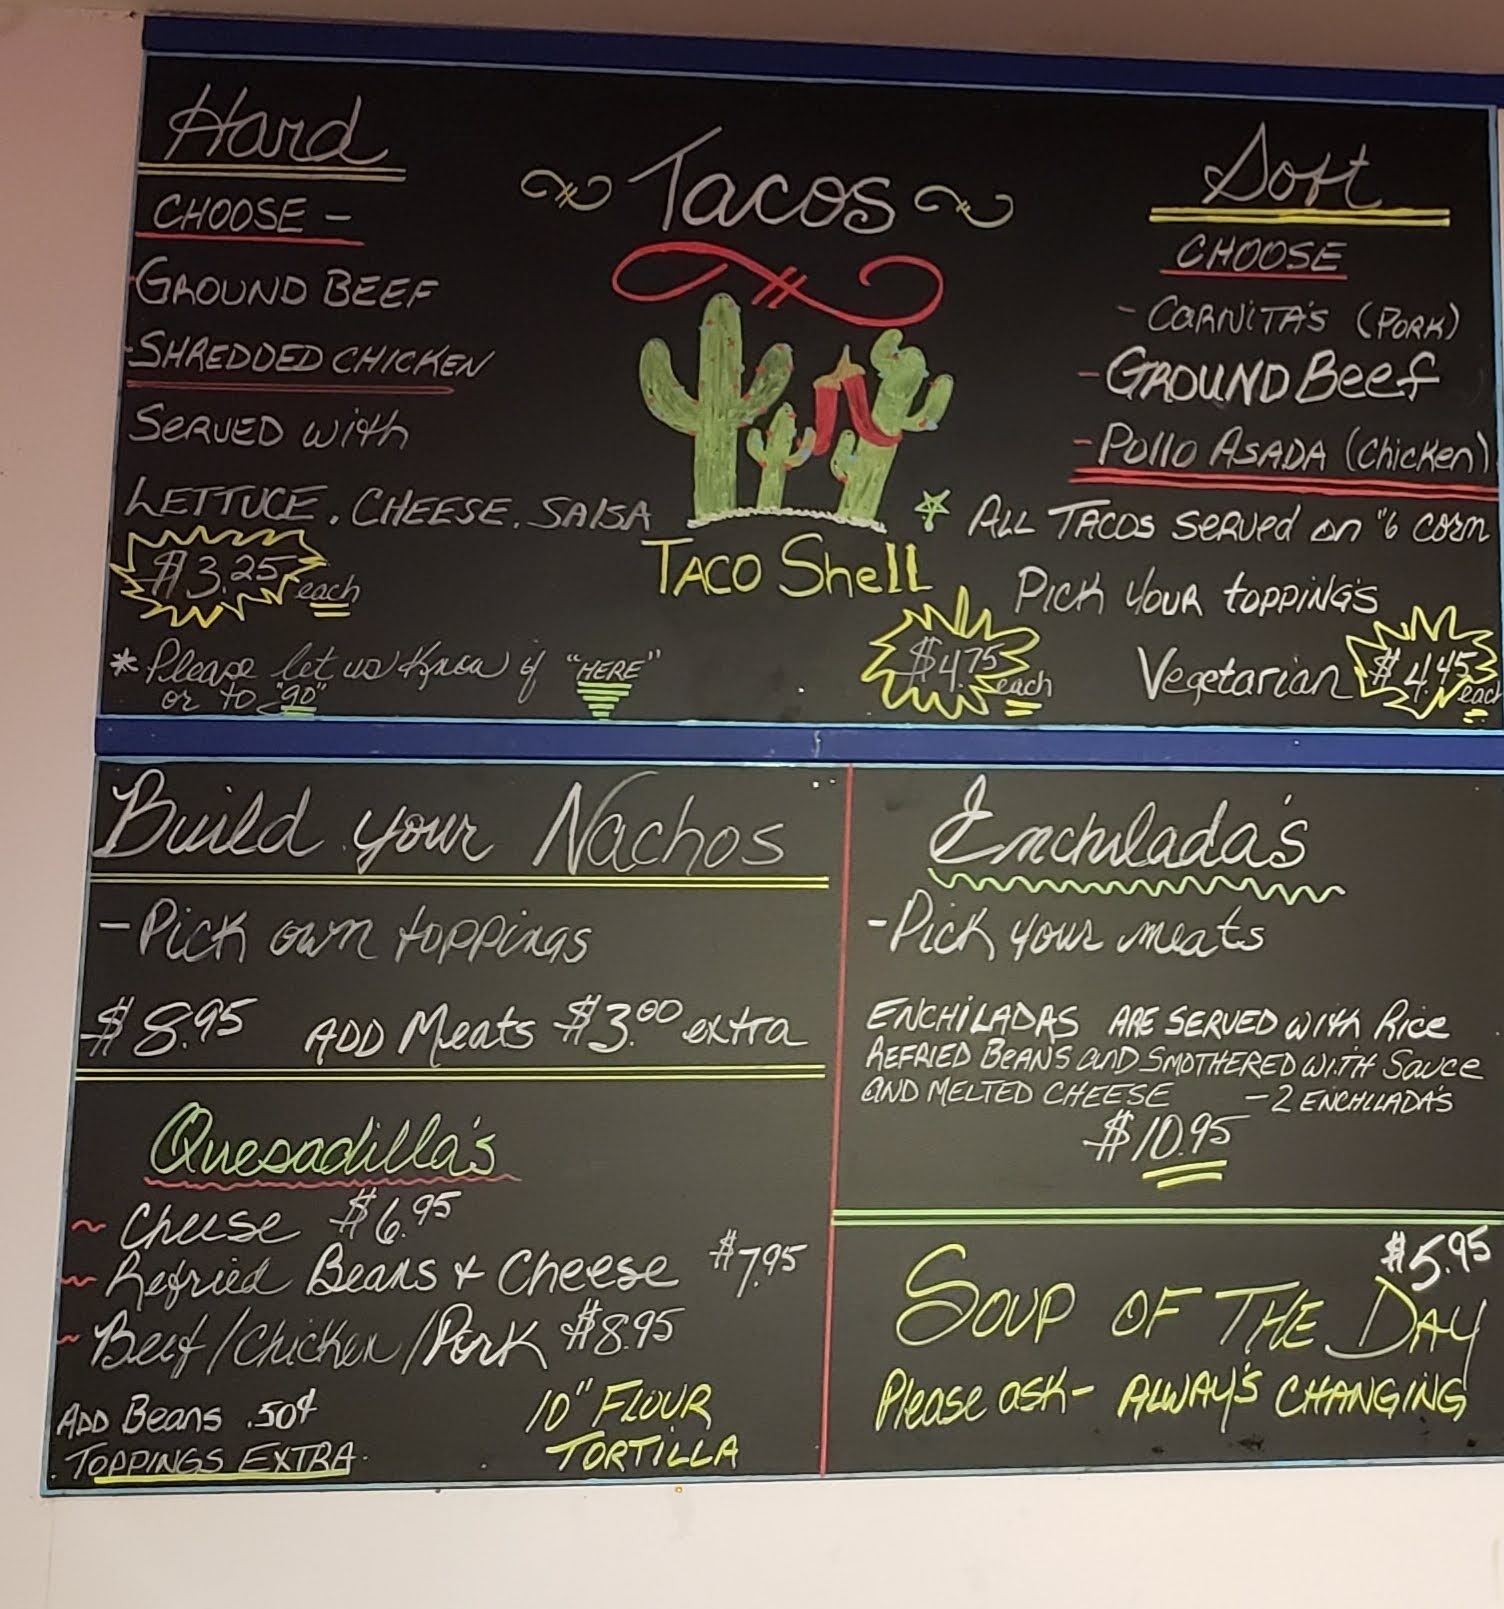 Tacos
Hard
CHOOSE -
-GROUND BEEF
-SHREDDED CHICKEN
SERVED with
LETTUCE, CHEESE, SALSA
$3.25 each
TACO Shell
* Please let us know if "HERE"
or to "go"
Soft
CHOOSE
- CARNITA'S (PORK)
- GROUND Beef
- Pollo ASADA (Chicken)
ALL TACOS served on "6 corn
Pick your toppings
$4.75 each
Vegetarian $4.45 each
Build your Nachos
- Pick own toppings
$8.95 ADD Meats $3.00 extra
Quesadilla's
~ Cheese $6.95
~ Refried Beans + Cheese $7.95
~ Beef/Chicken/Pork $8.95
ADD Beans .50¢
TOPPINGS EXTRA
10" FLOUR
TORTILLA
Enchilada's
- Pick your meats
ENCHILADAS ARE SERVED with Rice
REFRIED BEANS and SMOTHERED WITH Sauce
AND MELTED CHEESE - 2 ENCHILADA'S
$10.95
$5.95
SOUP OF THE DAY
Please ask - ALWAY'S CHANGING